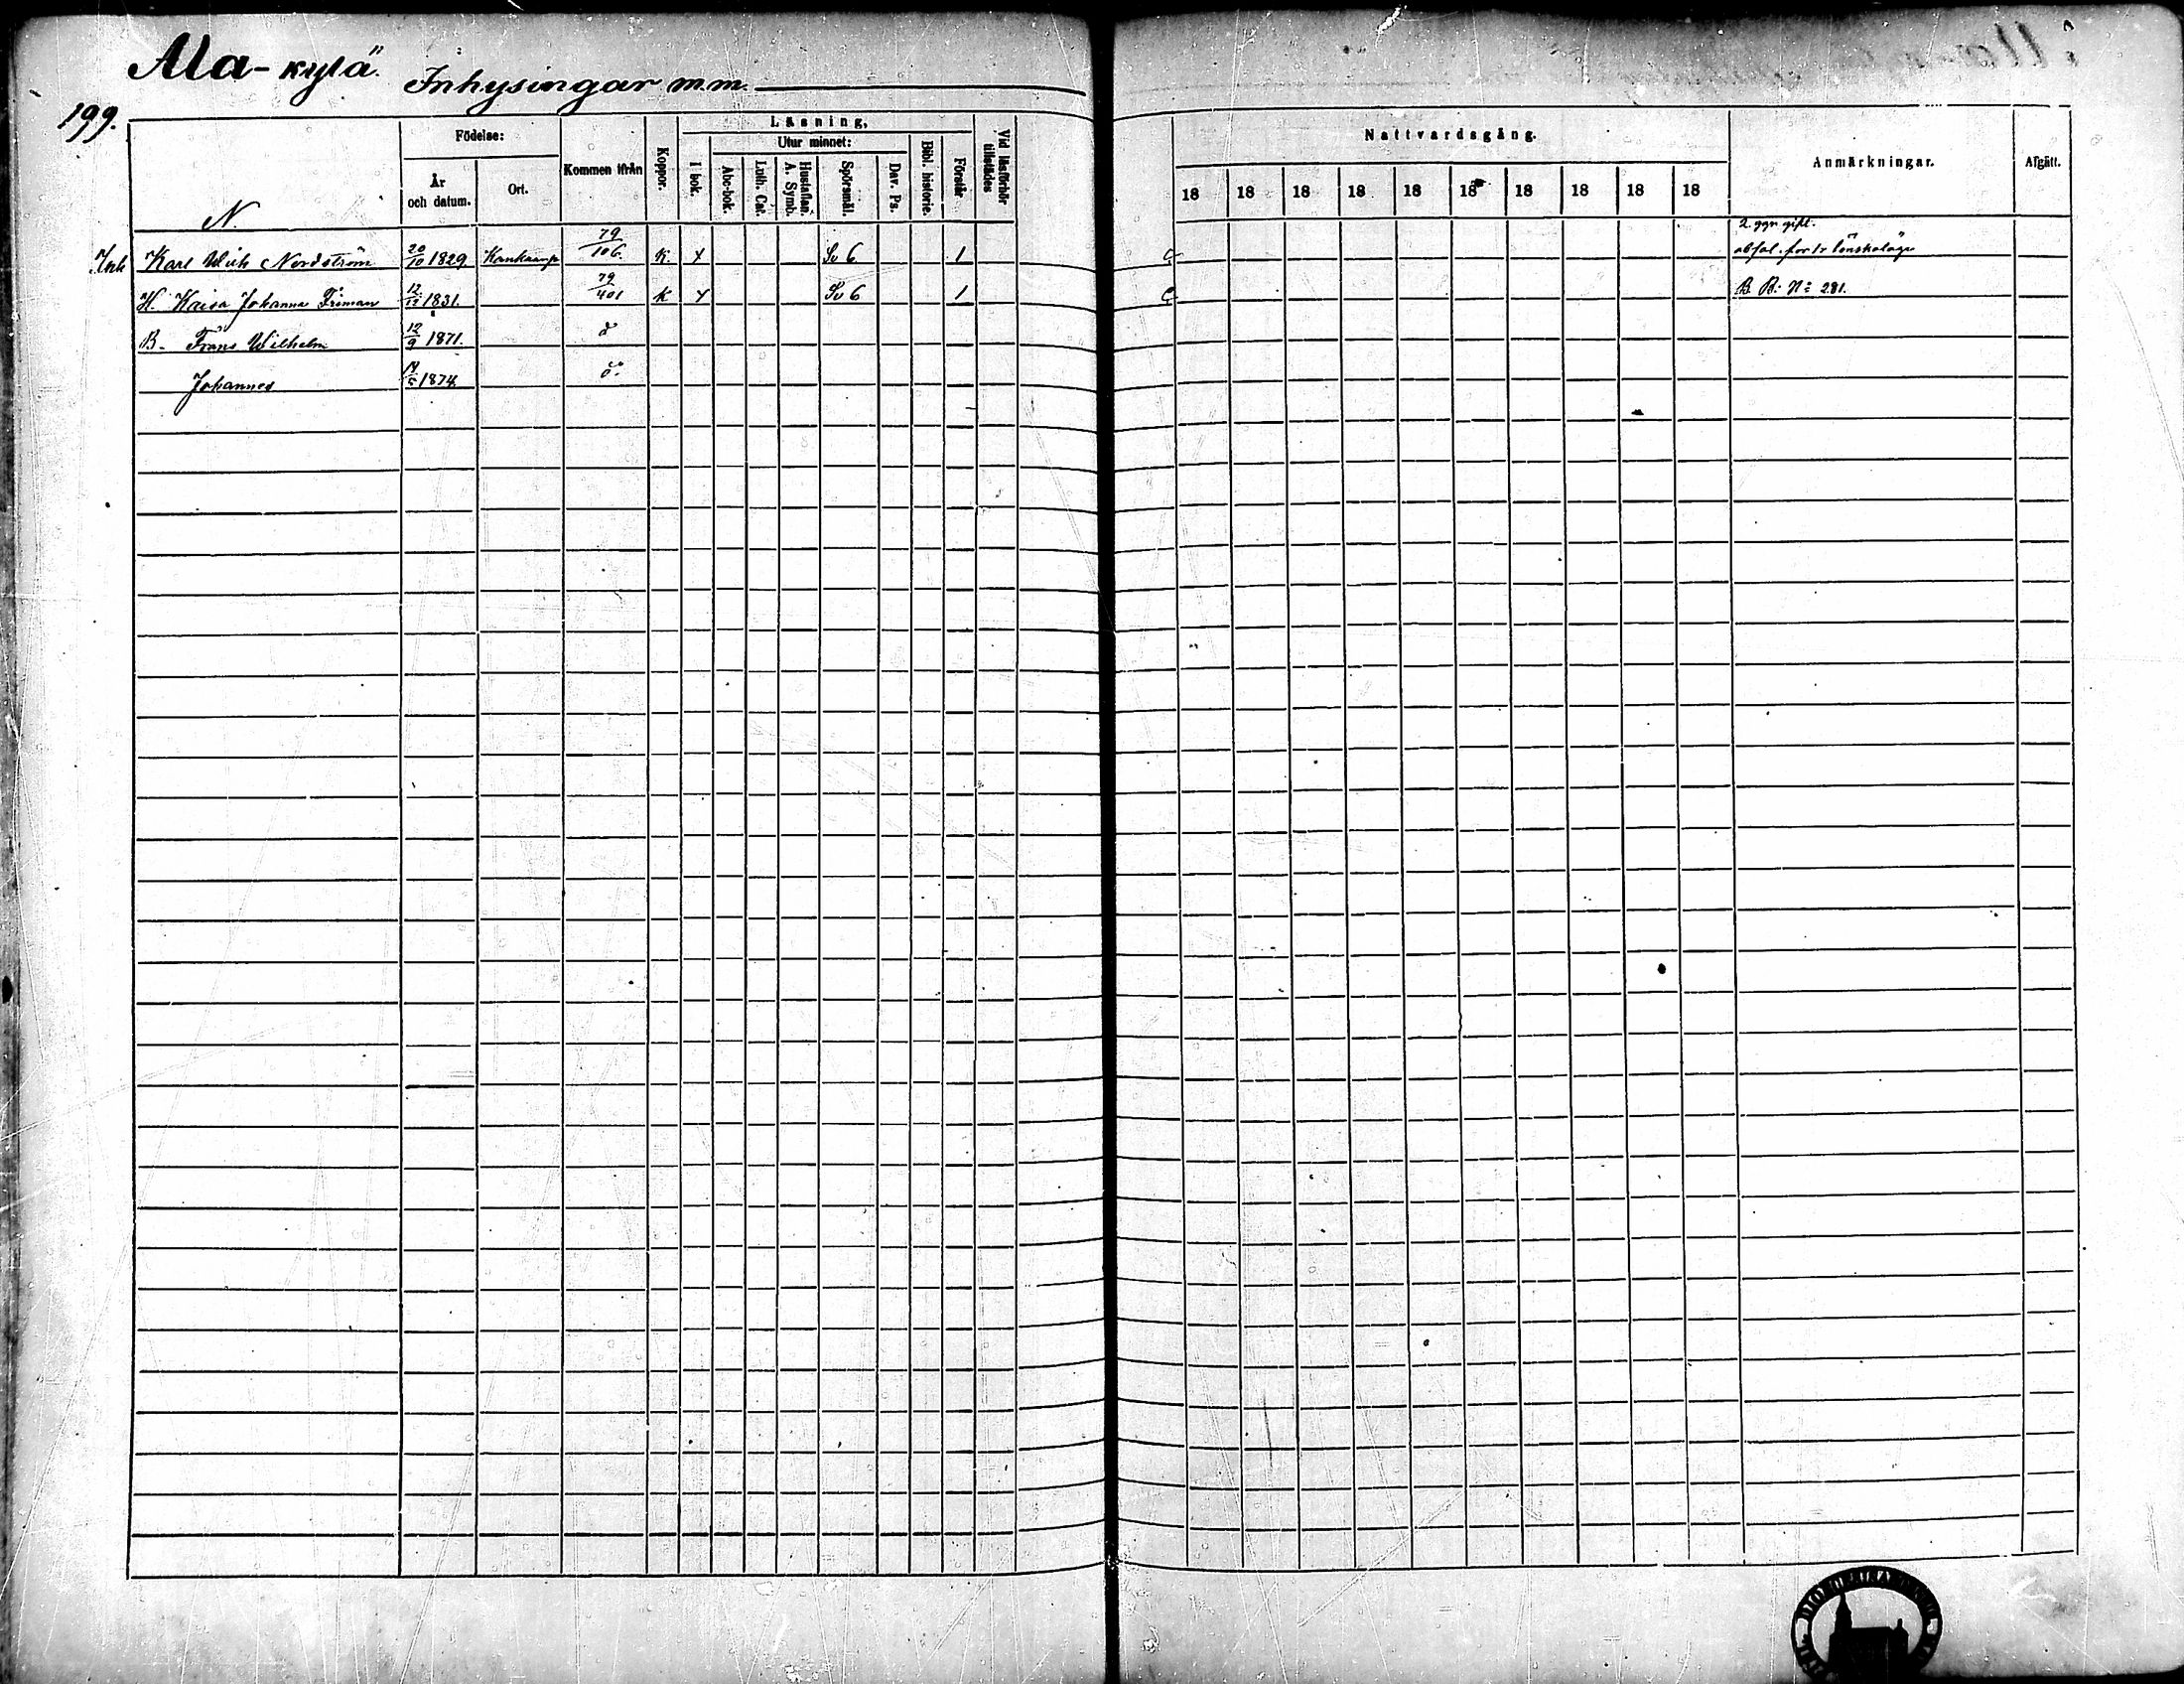 Ala-kylä.
Inhysingar m.m.
199.
Födelse: Kommen ifrån Koppor. Läsning, Vid läsförhör tillstädes
År och datum. Ort. I bok. Utur minnet: Bibl. historie. Förstår
Abc-bok. Luth. Cat. Hustaflan. A. Symb. Spörsmål. Dav. Ps.
Nattvardsgång. Anmärkningar. Afgått.
18 18 18 18 18 18 18 18 18 18
N.
2 ggr gift.
Inh Karl Wilh Nordström 20/10 1829 79/106 K. x Sv 6 1 C absol. for 1r lönskaläge
H. Kaisa Johanna Friman 12/12 1831. 79/401 K x Sv 6 1 C B. B. No 281.
B. Frans Wilhelm 12/9 1871.
Johannes 14/5 1874.